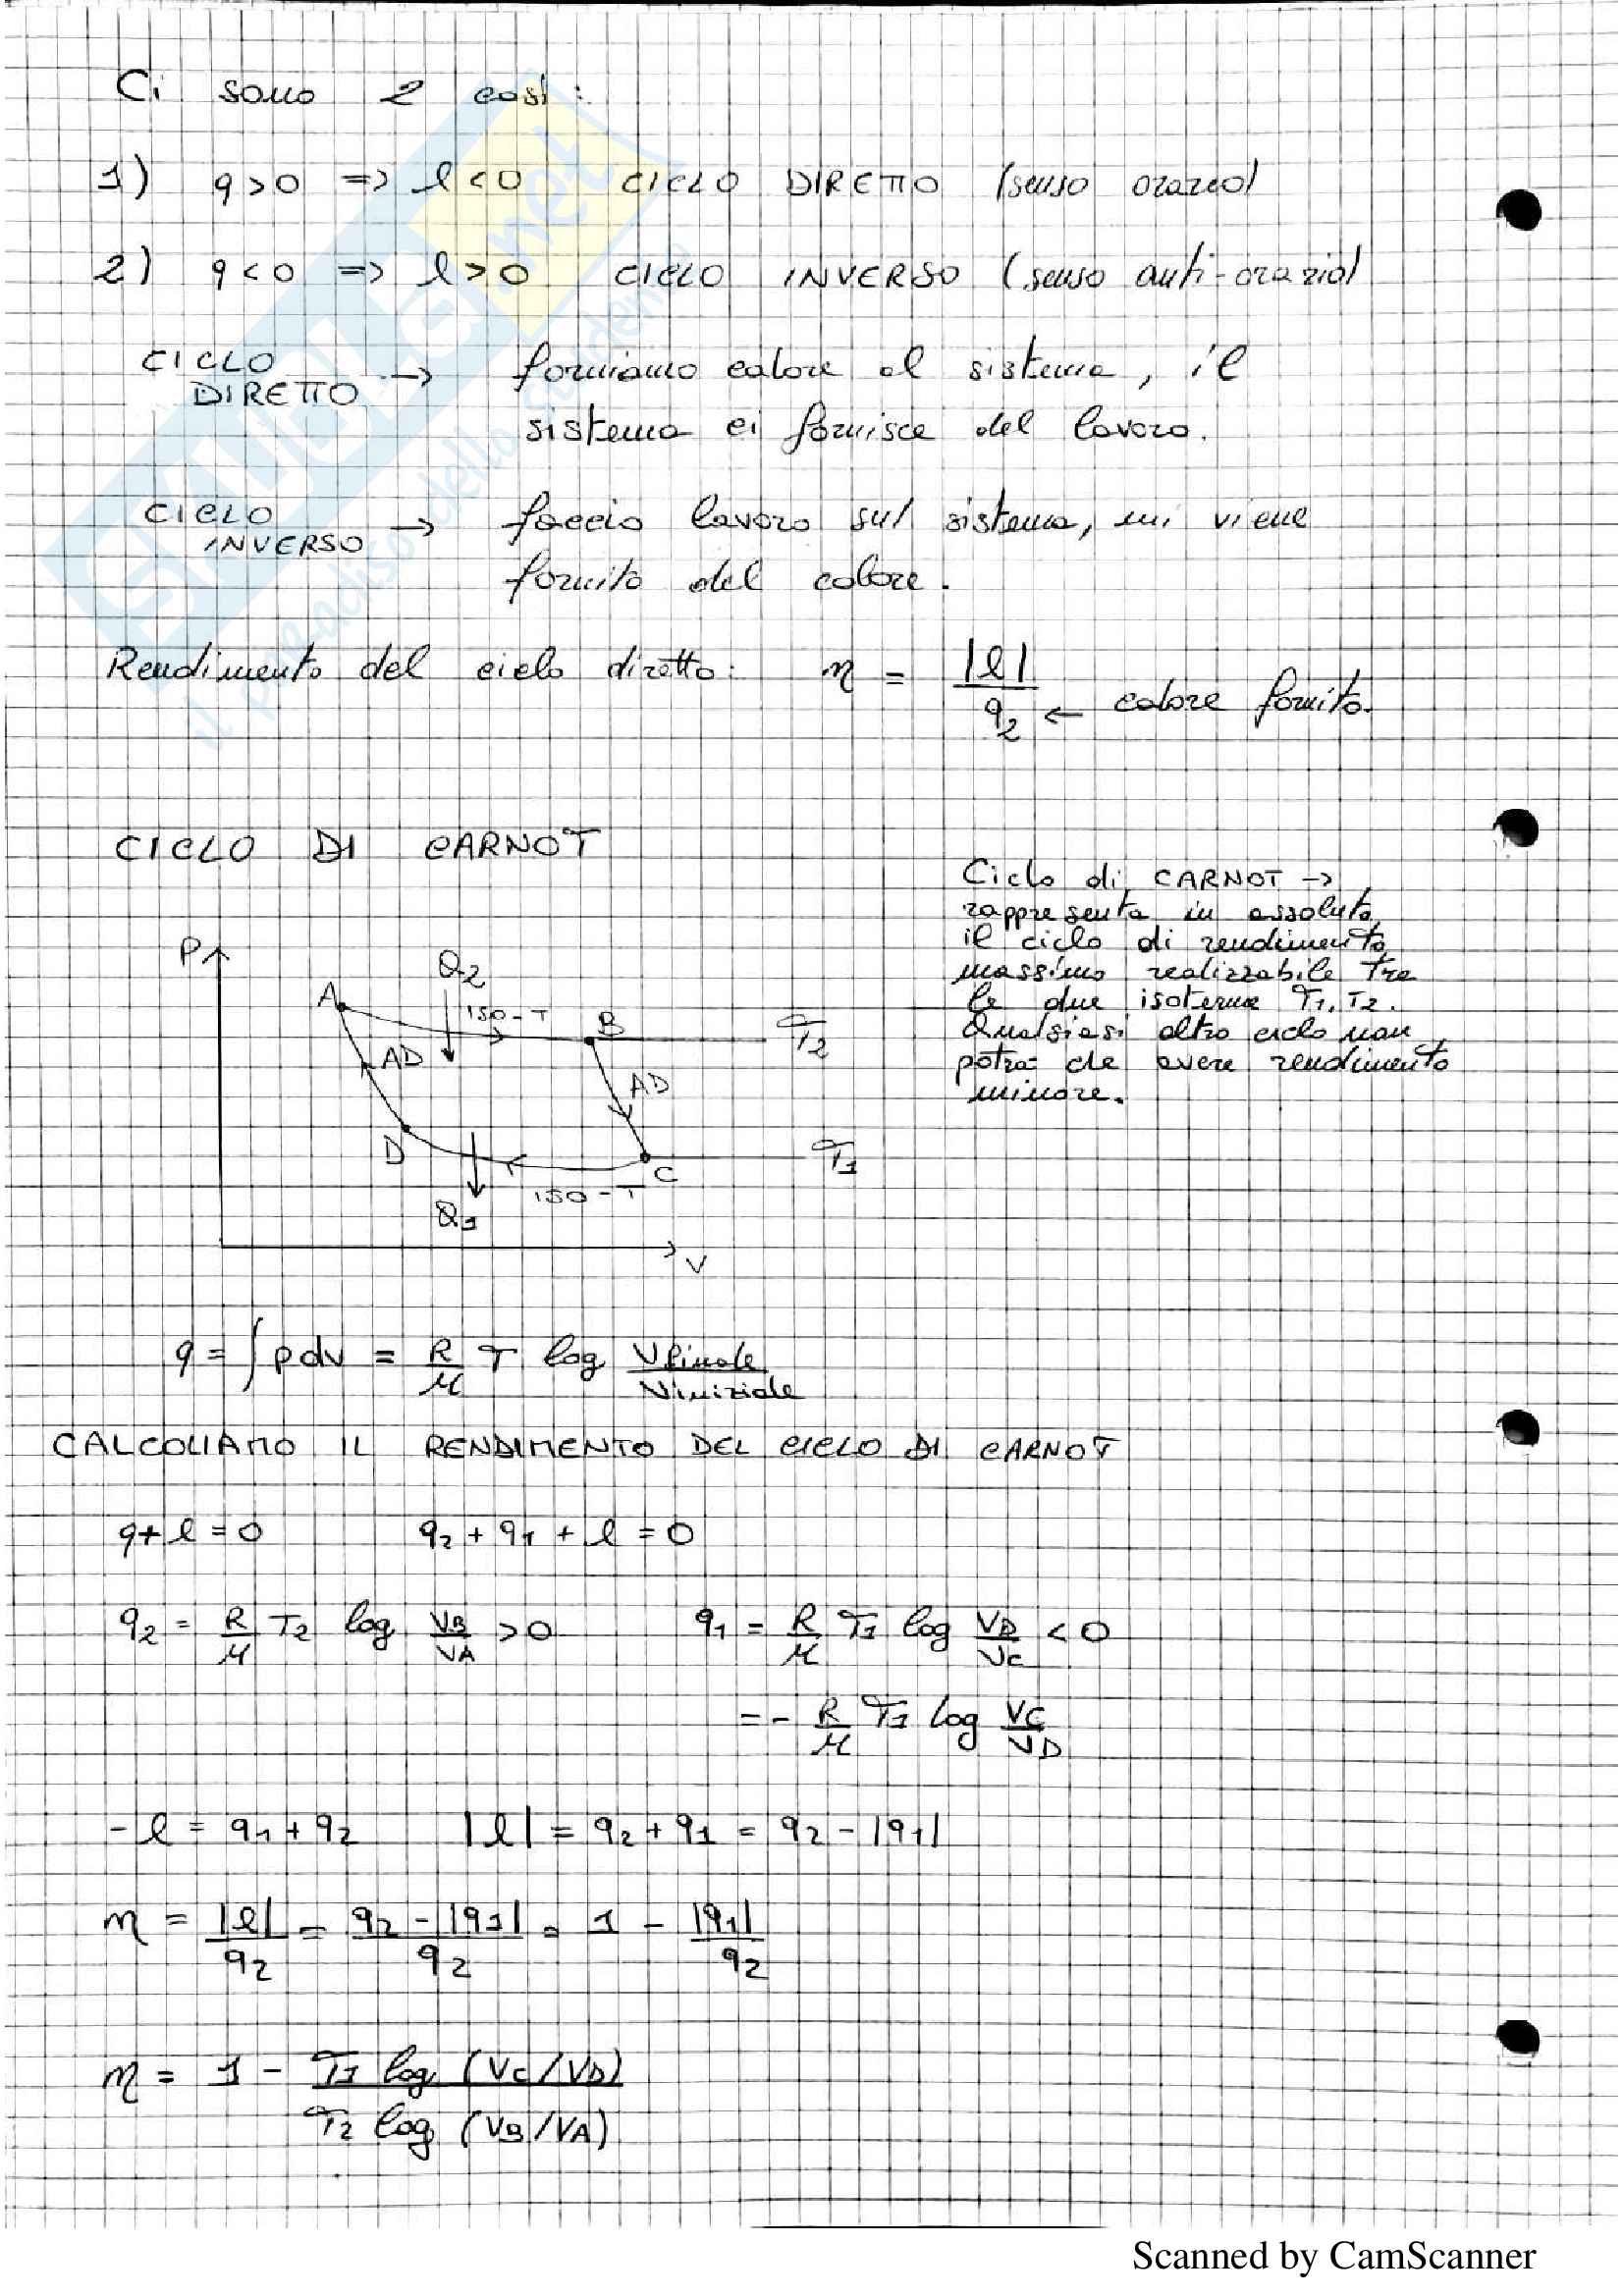 Ci sono 2 casi:
1) q > 0 => l < 0 CICLO DIRETTO (senso orario)
2) q < 0 => l > 0 CICLO INVERSO (senso anti-orario)
CICLO DIRETTO → forniamo calore al sistema, il
sistema ci fornisce del lavoro.
CICLO INVERSO → faccio lavoro sul sistema, mi viene
fornito del calore.
Rendimento del ciclo diretto: η = |l| / q2 ← calore fornito.
CICLO DI CARNOT
Ciclo di CARNOT →
rappresenta in assoluto
il ciclo di rendimento
massimo realizzabile tra
le due isoterme T1, T2.
Qualsiasi altro ciclo non
potrà che avere rendimento
minore.
P
Q2
A
ISO-T
B
T2
AD
AD
D
T1
C
ISO-T
Q1
V
q = ∫ p dv = R/M T log Vfinale/Viniziale
CALCOLIAMO IL RENDIMENTO DEL CICLO DI CARNOT
q + l = 0 q2 + q1 + l = 0
q2 = R/M T2 log VB/VA > 0 q1 = R/M T1 log VD/VC < 0
= - R/M T1 log VC/VD
- l = q1 + q2 |l| = q2 + q1 = q2 - |q1|
η = |l|/q2 = (q2 - |q1|)/q2 = 1 - |q1|/q2
η = 1 - T1 log (VC/VD) / T2 log (VB/VA)
Scanned by CamScanner
SKUOLA.net
il paradiso dello studente